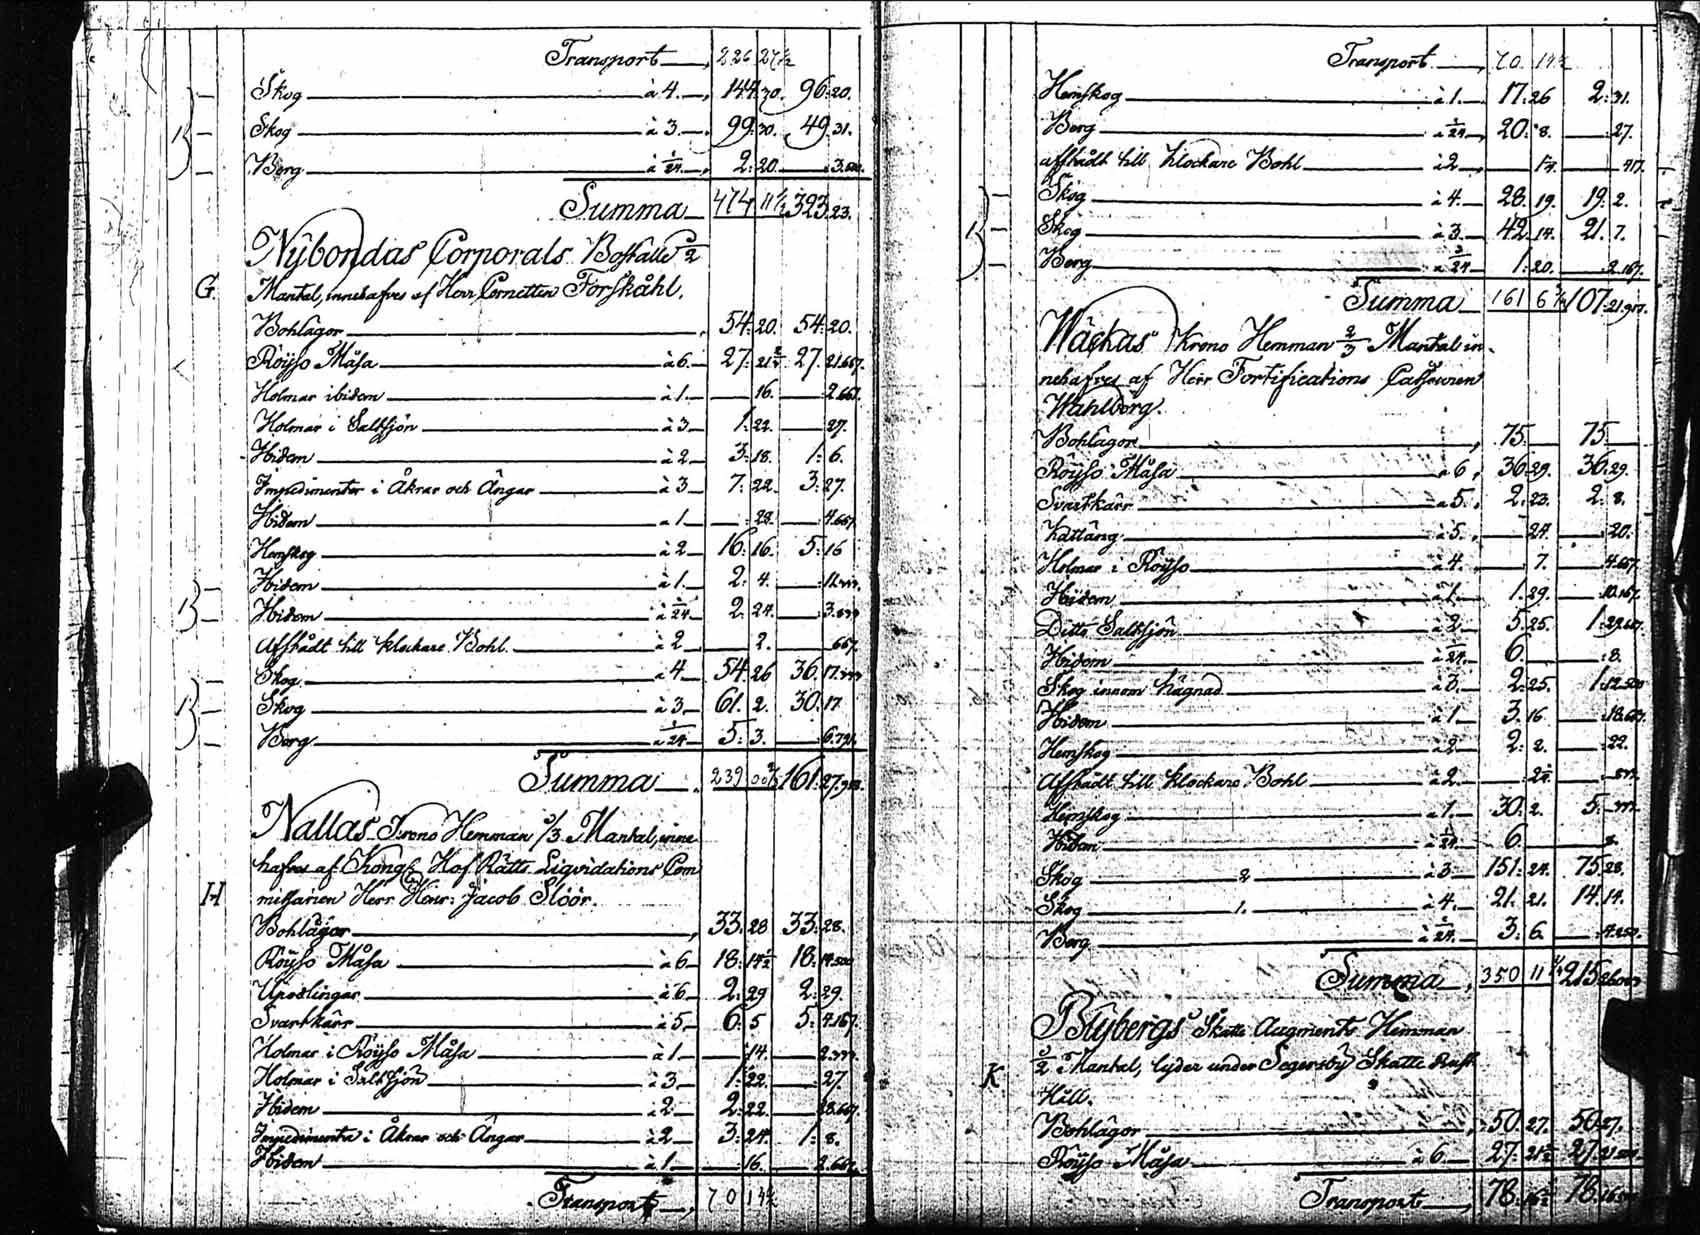 Transport 226 27½
Skog à 4. 144.30. 96.20.
Skog à 3. 99.30. 49.31.
Berg à 1/24. 2.20. 3.500.
Summa 474 11½ 323.23.
Nÿbondas Corporals Boställe ½
G Mantal, innehafves af Herr Cornetten Forskåhl.
Bohlägor 54.20. 54.20.
Röÿsö Måsa à 6. 27. 27. 21.667.
Holmar ibidem à 1. 16. 2.667.
Holmar i Saltsjön à 3 1.22. 27.
Ibidem à 2 3.18. 1.6.
Impedimenter i Åkrar och Ängar à 3 7.22. 3.27.
Ibidem à 1 28. 4.667.
Hemskog à 2 16.16. 5.16
Ibidem à 1. 2.4.
Ibidem à 1/24 2.24.
Afstådt till klockare Bohl à 2 2. 667.
Skog à 4 54.26 36.17.
Skog à 3 61.2. 30.17
Berg à 1/24 5.3. 6.791.
Summa 239 161.27.
Nallas Krono Hemman 2/3 Mantal, inne
hafves af Kongl. Hof Rätts Liqvidations Com
H missarien Herr Henr: Jacob Slöör.
Bohlägor 33.28 33.28.
Röÿsö Måsa à 6 18.14½ 18.14.500
Upodlingar à 6 2.29 2.29.
Svartkärr à 5 6.5 5.4.167.
Holmar i Röÿsö Måsa à 1 14. 2.333.
Holmar i Saltsjön à 3 1.22. 27.
Ibidem à 2 2.22. 28.667.
Impedimenta i Åkrar och Ängar à 2 3.24. 1.8.
Ibidem à 1 16. 2.667.
Transport 70 14½
Transport 70 14½
Hemskog à 1. 17.26 2.31.
Berg à 1/24. 20.8. 27.
afstådt till klockare Bohl à 2
Skog à 4. 28.19. 19.2.
Skog à 3. 42.14. 21.7.
Berg 1.20. 2.167.
Summa 161 6½ 107.21.
Wäckas Krono Hemman 2/3 Mantal in-
nehafves af Herr Fortifications
Wahlberg.
Bohlägor 75. 75
Röÿsö Måsa à 6 36.29. 36.29.
Svartkärr à 5. 2.23. 2.8.
Kattäng à 5. 24. 20.
Holmar i Röÿsö à 4. 7. 4.667.
Ibidem à 1. 1.29. 10.167.
Ditto Saltsjön à 2 5.25. 1.29.667.
Ibidem à 1/24. 6. 8.
Skog innom hägnad à 3. 2.25. 1.12.500
Ibidem à 1 3.16
Hemskog à 2 2.2. 22.
Afstådt till klockare Bohl à 2
Hemskog à 1. 30.2. 5.
Ibidem à 1/24 6. 8.
Skog 2 à 3 151.24. 75.28.
Skog 1. à 4. 21.21. 14.14.
Berg à 1/24. 3.6. 4.250.
Summa 350 11 215
Blÿbergs Skatte Augments Hemman
K ½ Mantal, lyder under Segersbÿ Skatte Rust
Håll.
Bohlägor 50.27. 50.27.
Röÿsö Måsa à 6 27. 27.
Transport 78.16½ 78.16